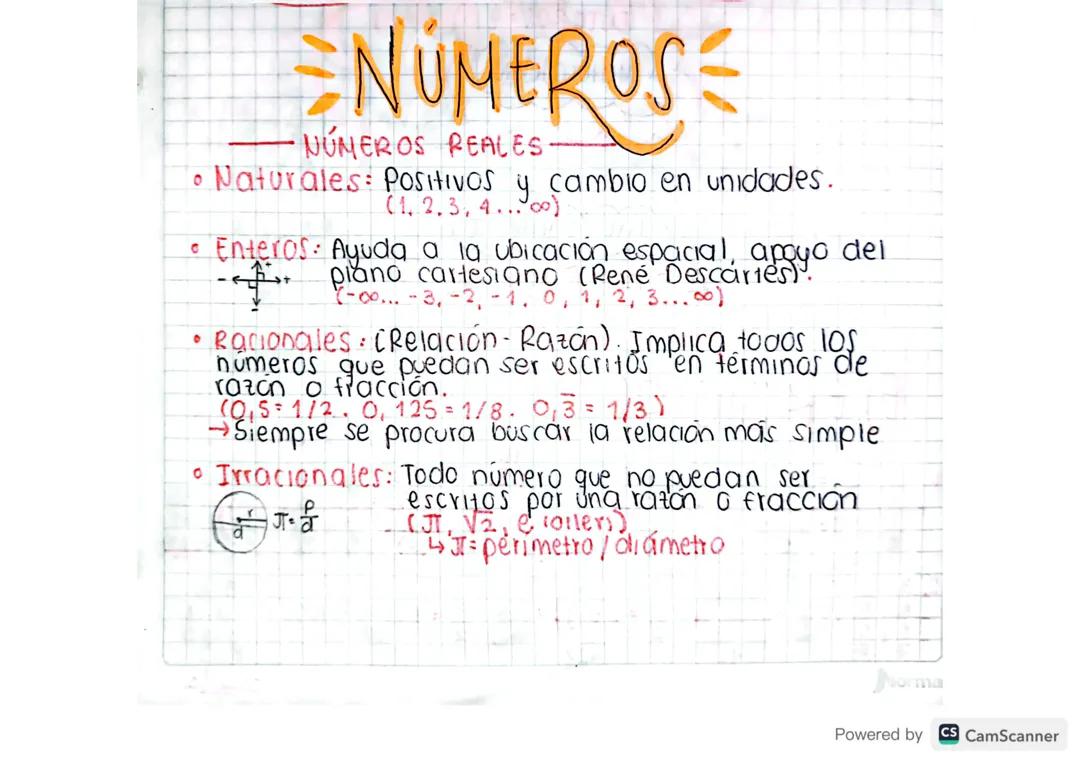 NÚMEROS
NÚMEROS REALES
• Naturales: Positivos y cambio en unidades.
(1, 2, 3, 4... ∞)
• Enteros: Ayuda a la ubicación espacial, apoyo del
plano cartesiano (René Descartes).
(-∞... -3, -2, -1, 0, 1, 2, 3... ∞)
- + + -
• Racionales: (Relación - Razón). Implica todos los
números que puedan ser escritos en términos de
razón o fracción.
(0,5 = 1/2. 0,125 = 1/8. 0,3̅ = 1/3)
→ Siempre se procura buscar la relación más simple
• Irracionales: Todo número que no puedan ser
escritos por una razón o fracción
(π, √2, e
↳ π = perímetro / diámetro
r d π = P/d
Norma
Powered by CS CamScanner